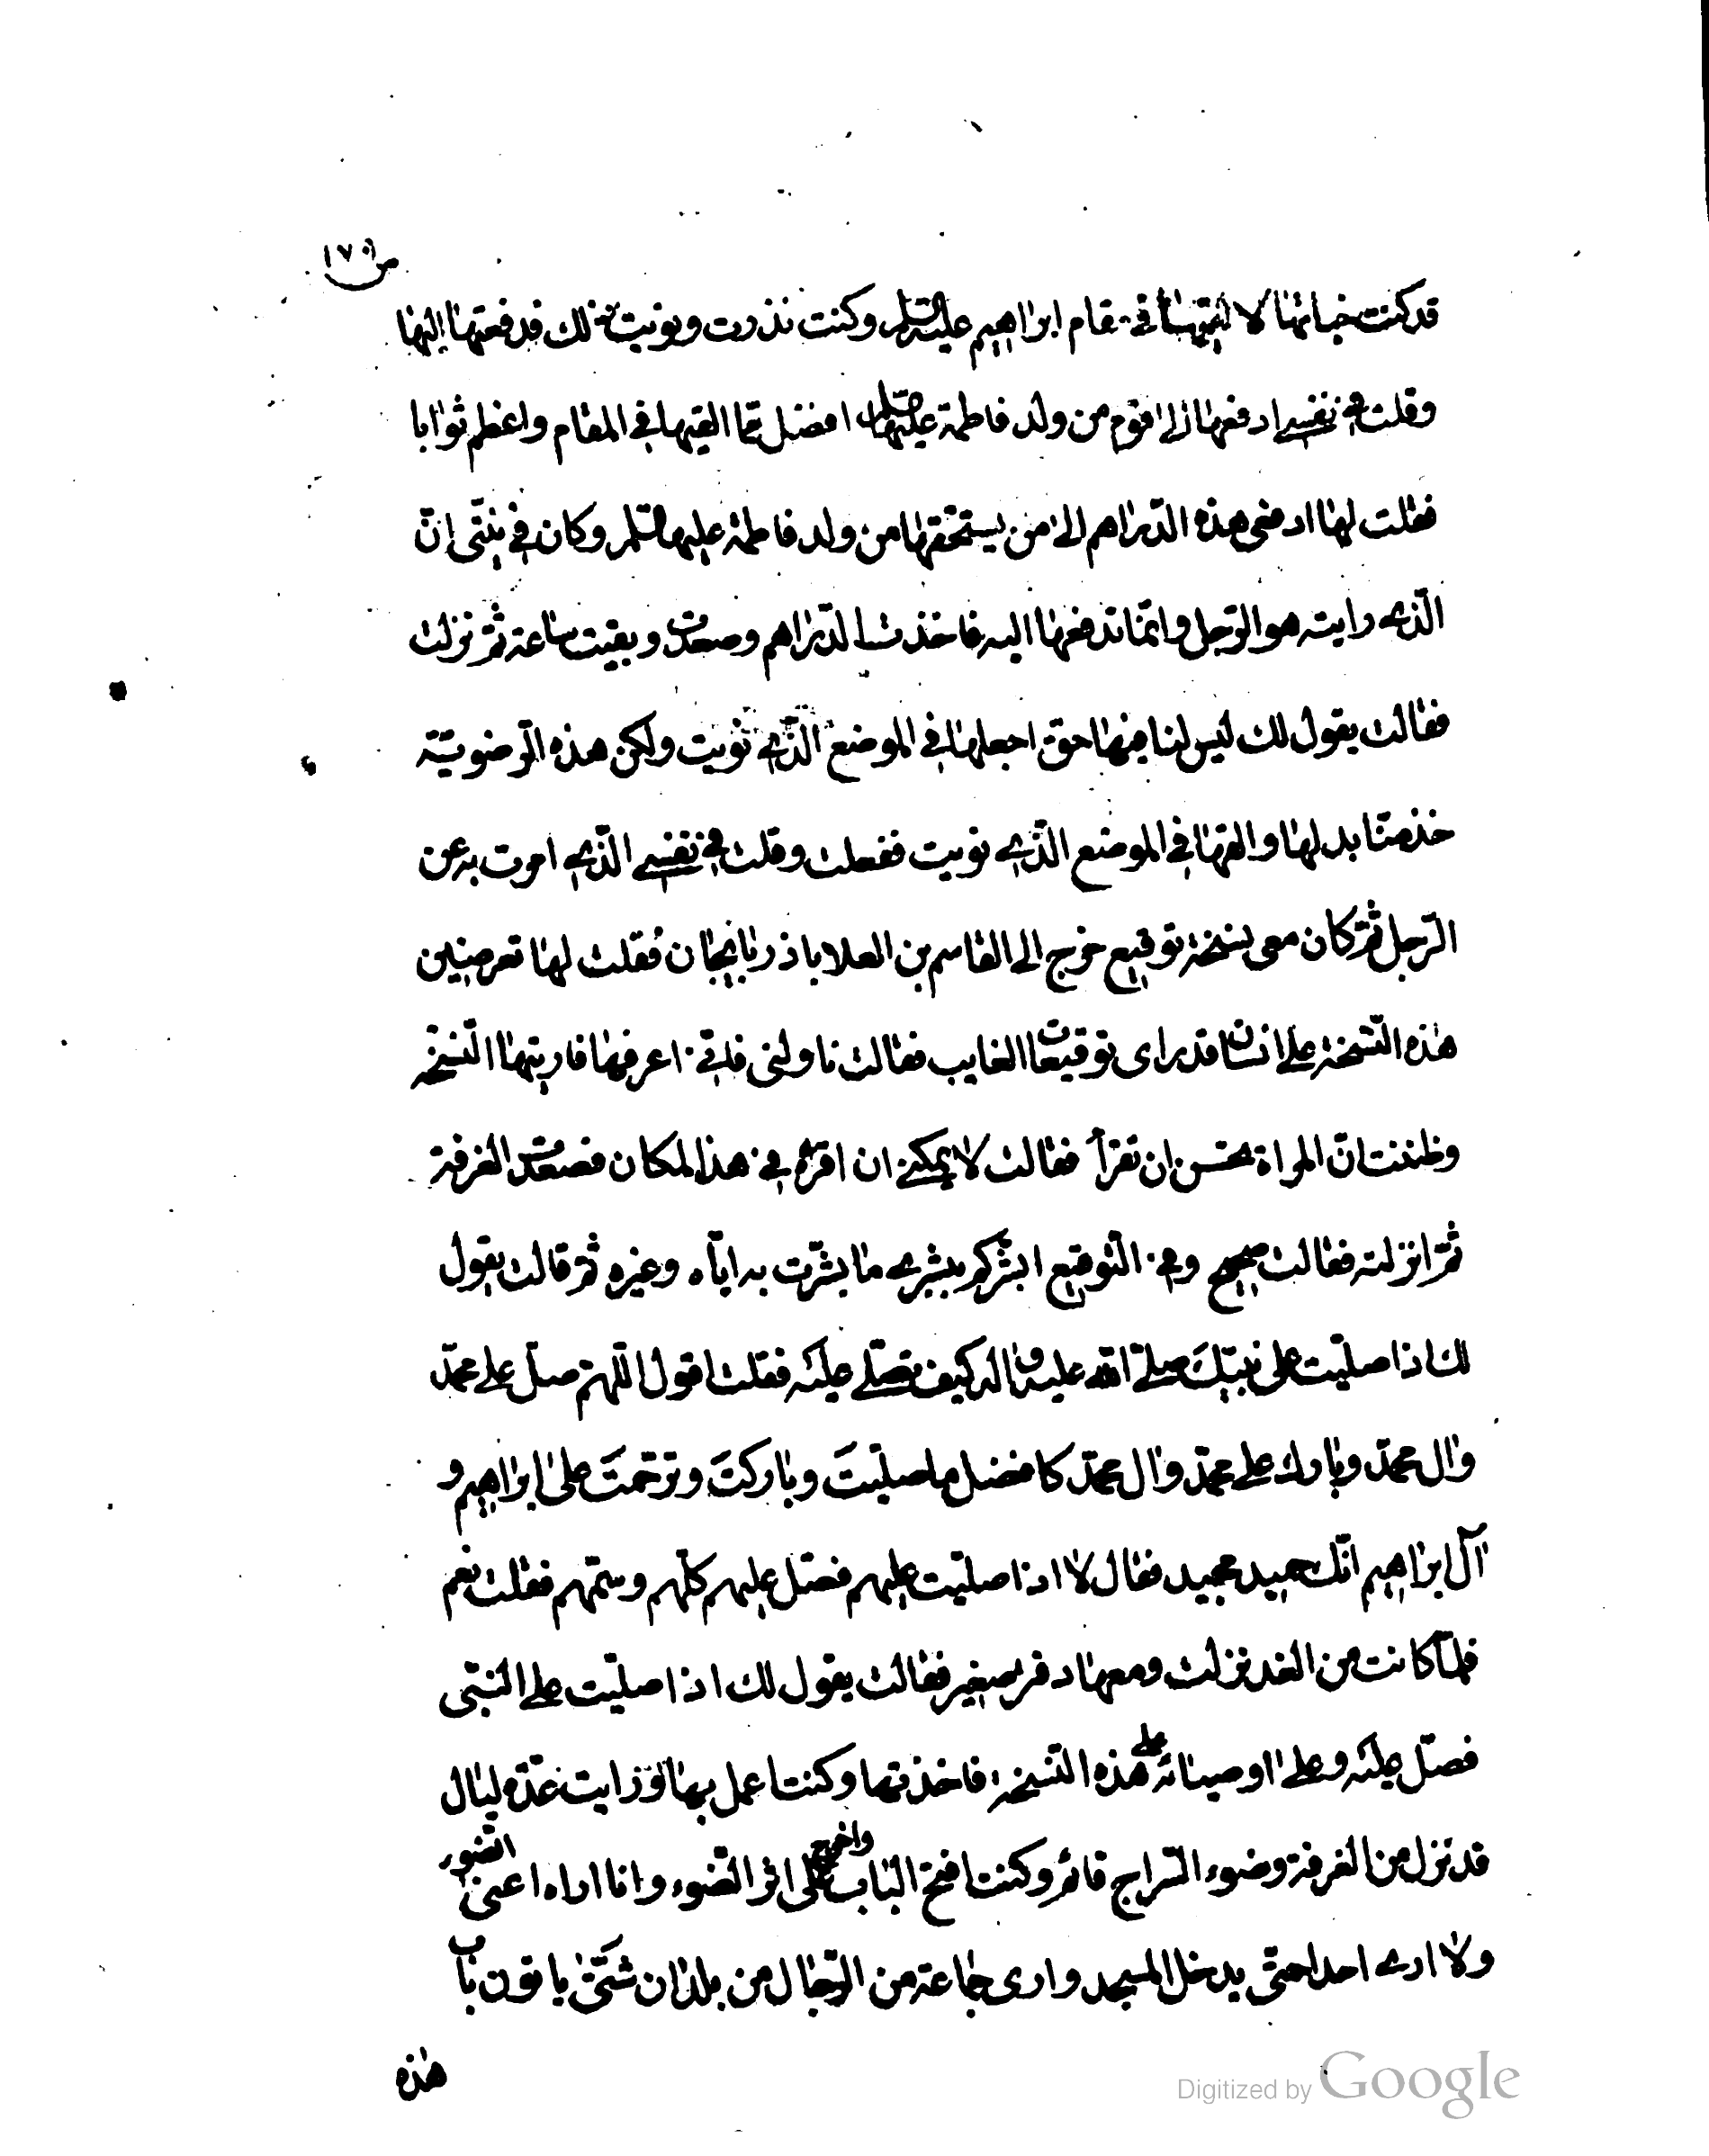 ص ١٧٠
قد كنت خباتها لالقيها في مقام ابراهيم عليه السلم وكنت نذرت ونويت ذلك فدفعتها اليها
وقلت في نفسي ادفعها الى قوم من ولد فاطمة عليها السلم افضل مما القيها في المقام واعظم ثوابا
فقلت لها ادفعى هذه الدراهم الى من يستحقها من ولد فاطمة عليها السلم وكان في نيتى ان
الذي رايته هو الرجل وانما تدفعها اليه فاخذت الدراهم وصعدت وبقيت ساعة ثم نزلت
فقالت يقول لك ليس لنا فيها حق اجعلها في الموضع الذي نويت ولكن هذه الرضوية
خذ منا بدلها والقها في الموضع الذي نويت ففعلت وقلت في نفسي الذي امرت به عن
الرجل ثم كان معى نسخة توقيع خرج الى القاسم بن العلا باذربايجان فقلت لها تعرضين
هذه النسخة على انسان قد راى توقيعات الغايب فقالت ناولنى فانى اعرفها فاريتها النسخة
وظننت ان المراة تحسن ان تقرأ فقالت لا يمكننى ان اقراه في هذا المكان فصعدت الغرفة
ثم انزلته فقالت صحيح وفي التوقيع ابشركم ببشرى ما بشرت به اياه وغيره ثم قالت يقول
لك اذا صليت على نبيك صلى الله عليه واله كيف تصلى عليه فقلت اقول اللهم صل على محمد
وال محمد وبارك على محمد وال محمد كافضل ما صليت وباركت وترحمت على ابراهيم و
آل ابراهيم انك حميد مجيد فقال لا اذا صليت عليهم فصل عليهم كلهم وسمهم فقلت نعم
فلما كانت من الغد نزلت ومعها دفتر صغير فقالت يقول لك اذا صليت على النبى
فصل عليه وعلى اوصيائه على هذه النسخة فاخذتها وكنت اعمل بها ورايت عدة ليال
قد نزل من الغرفة وضوء السراج قائم وكنت افتح الباب واخرج على اثر الضوء وانا اراه اعنى الضوء
ولا ارى احدا حتى يدخل المسجد وارى جماعة من الرجال من بلدان شتى ياتون باب
هذه
Digitized by Google